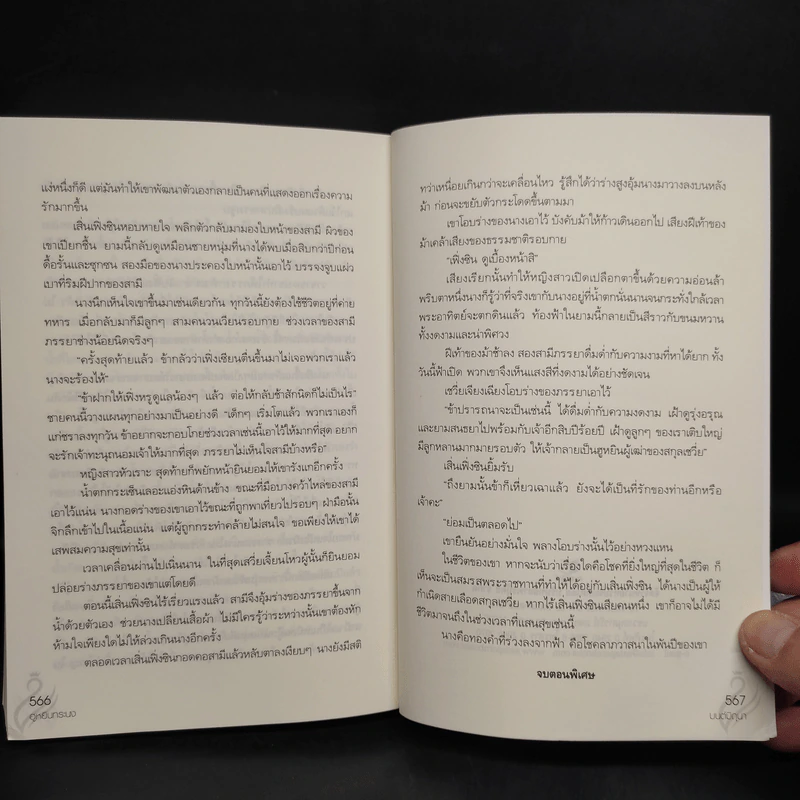 แง่หนึ่งก็ดี แต่มันทำให้เขาพัฒนาตัวเองกลายเป็นคนที่แสดงออกเรื่องความ
รักมากขึ้น
เสิ่นเฟิ่งซินหอบหายใจ พลิกตัวกลับมามองใบหน้าของสามี ผิวของ
เขาเปียกชื้น ยามนี้กลับดูเหมือนชายหนุ่มที่นางได้พบเมื่อสิบกว่าปีก่อน
ดื้อรั้นและซุกซน สองมือของนางประคองใบหน้านั้นเอาไว้ บรรจงจูบแผ่ว
เบาที่ริมฝีปากของสามี
นางนึกเห็นใจเขาขึ้นมาเช่นเดียวกัน ทุกวันนี้ยังต้องใช้ชีวิตอยู่ที่ค่าย
ทหาร เมื่อกลับมาก็มีลูกๆ สามคนวนเวียนรอบกาย ช่วงเวลาของสามี
ภรรยาช่างน้อยนิดจริงๆ
"ครั้งสุดท้ายแล้ว ข้ากลัวว่าเฟิ่งเซียนตื่นขึ้นมาไม่เจอพวกเราแล้ว
นางจะร้องไห้"
"ข้าฝากให้เฟิ่งหรูดูแลน้องๆ แล้ว ต่อให้กลับช้าสักนิดก็ไม่เป็นไร"
ชายคนนี้วางแผนทุกอย่างมาเป็นอย่างดี "เด็กๆ เริ่มโตแล้ว พวกเราเองก็
แก่ชราลงทุกวัน ข้าอยากจะกอบโกยช่วงเวลาเช่นนี้เอาไว้ให้มากที่สุด อยาก
จะรักเจ้าทะนุถนอมเจ้าให้มากที่สุด ภรรยาไม่เห็นใจสามีบ้างหรือ"
หญิงสาวหัวเราะ สุดท้ายก็พยักหน้ายินยอมให้เขารังแกอีกครั้ง
น้ำตกกระเซ็นเลอะแอ่งหินด้านข้าง ขณะที่มือบางคว้าไหล่ของสามี
เอาไว้แน่น นางกอดร่างของเขาเอาไว้ขณะที่ถูกพาเที่ยวไปรอบๆ ฝ่ามือนั้น
จิกลึกเข้าไปในเนื้อแน่น แต่ผู้ถูกกระทำคล้ายไม่สนใจ ขอเพียงให้เขาได้
เสพสมความสุขเท่านั้น
เวลาเคลื่อนผ่านไปเนิ่นนาน ในที่สุดเสวี่ยเจี้ยนโหวผู้นั้นก็ยินยอม
ปล่อยร่างภรรยาของเขาแต่โดยดี
ตอนนี้เสิ่นเฟิ่งซินไร้เรี่ยวแรงแล้ว สามีจึงอุ้มร่างของภรรยาขึ้นจาก
น้ำด้วยตัวเอง ช่วยนางเปลี่ยนเสื้อผ้า ไม่มีใครรู้ว่าระหว่างนั้นเขาต้องหัก
ห้ามใจเพียงใดไม่ให้ล่วงเกินนางอีกครั้ง
ตลอดเวลาเสิ่นเฟิ่งซินกอดคอสามีแล้วหลับตาลงเงียบๆ นางยังมีสติ
566
ฮูหยินกระบอง
ทว่าเหนื่อยเกินกว่าจะเคลื่อนไหว รู้สึกได้ว่าร่างสูงอุ้มนางมาวางลงบนหลัง
ม้า ก่อนจะขยับตัวกระโดดขึ้นตามมา
เขาโอบร่างของนางเอาไว้ บังคับม้าให้ก้าวเดินออกไป เสียงฝีเท้าของ
ม้าเคล้าเสียงของธรรมชาติรอบกาย
"เฟิ่งซิน ดูเบื้องหน้าสิ"
เสียงเรียกนั้นทำให้หญิงสาวเปิดเปลือกตาขึ้นด้วยความอ่อนล้า
พริบตาหนึ่งนางก็รู้ว่าที่จริงเขากับนางอยู่ที่น้ำตกนั่นนานจนกระทั่งใกล้เวลา
พระอาทิตย์จะตกดินแล้ว ท้องฟ้าในยามนี้กลายเป็นสีราวกับขนมหวาน
ทั้งงดงามและน่าพิศวง
ฝีเท้าของม้าช้าลง สองสามีภรรยาดื่มด่ำกับความงามที่หาได้ยาก ทั้ง
วันนี้ฟ้าเปิด พวกเขาจึงเห็นแสงสีที่งดงามได้อย่างชัดเจน
เซวี่ยเจียงเฉียงโอบร่างของภรรยาเอาไว้
"ข้าปรารถนาจะเป็นเช่นนี้ ได้ดื่มด่ำกับความงดงาม เฝ้าดูรุ่งอรุณ
และยามสนธยาไปพร้อมกับเจ้าอีกสิบปีร้อยปี เฝ้าดูลูกๆ ของเราเติบใหญ่
มีลูกหลานมากมายรอบตัว ให้เจ้ากลายเป็นฮูหยินผู้เฒ่าของสกุลเซวี่ย"
เสิ่นเฟิ่งซินยิ้มรับ
"ถึงยามนั้นข้าก็เหี่ยวเฉาแล้ว ยังจะได้เป็นที่รักของท่านอีกหรือ
เจ้าคะ"
"ย่อมเป็นตลอดไป"
เขายืนยันอย่างมั่นใจ พลางโอบร่างนั้นไว้อย่างหวงแหน
ในชีวิตของเขา หากจะนับว่าเรื่องใดคือโชคที่ยิ่งใหญ่ที่สุดในชีวิต ก็
เห็นจะเป็นสมรสพระราชทานที่ทำให้ได้อยู่กับเสิ่นเฟิ่งซิน ได้นางเป็นผู้ให้
กำเนิดสายเลือดสกุลเซวี่ย หากไร้เสิ่นเฟิ่งซินเสียคนหนึ่ง เขาก็อาจไม่ได้มี
ชีวิตมาจนถึงในช่วงเวลาที่แสนสุขเช่นนี้
นางคือทองคำที่ร่วงลงจากฟ้า คือโชคลาภวาสนาในพันปีของเขา
จบตอนพิเศษ
567
มนต์มีคุนา